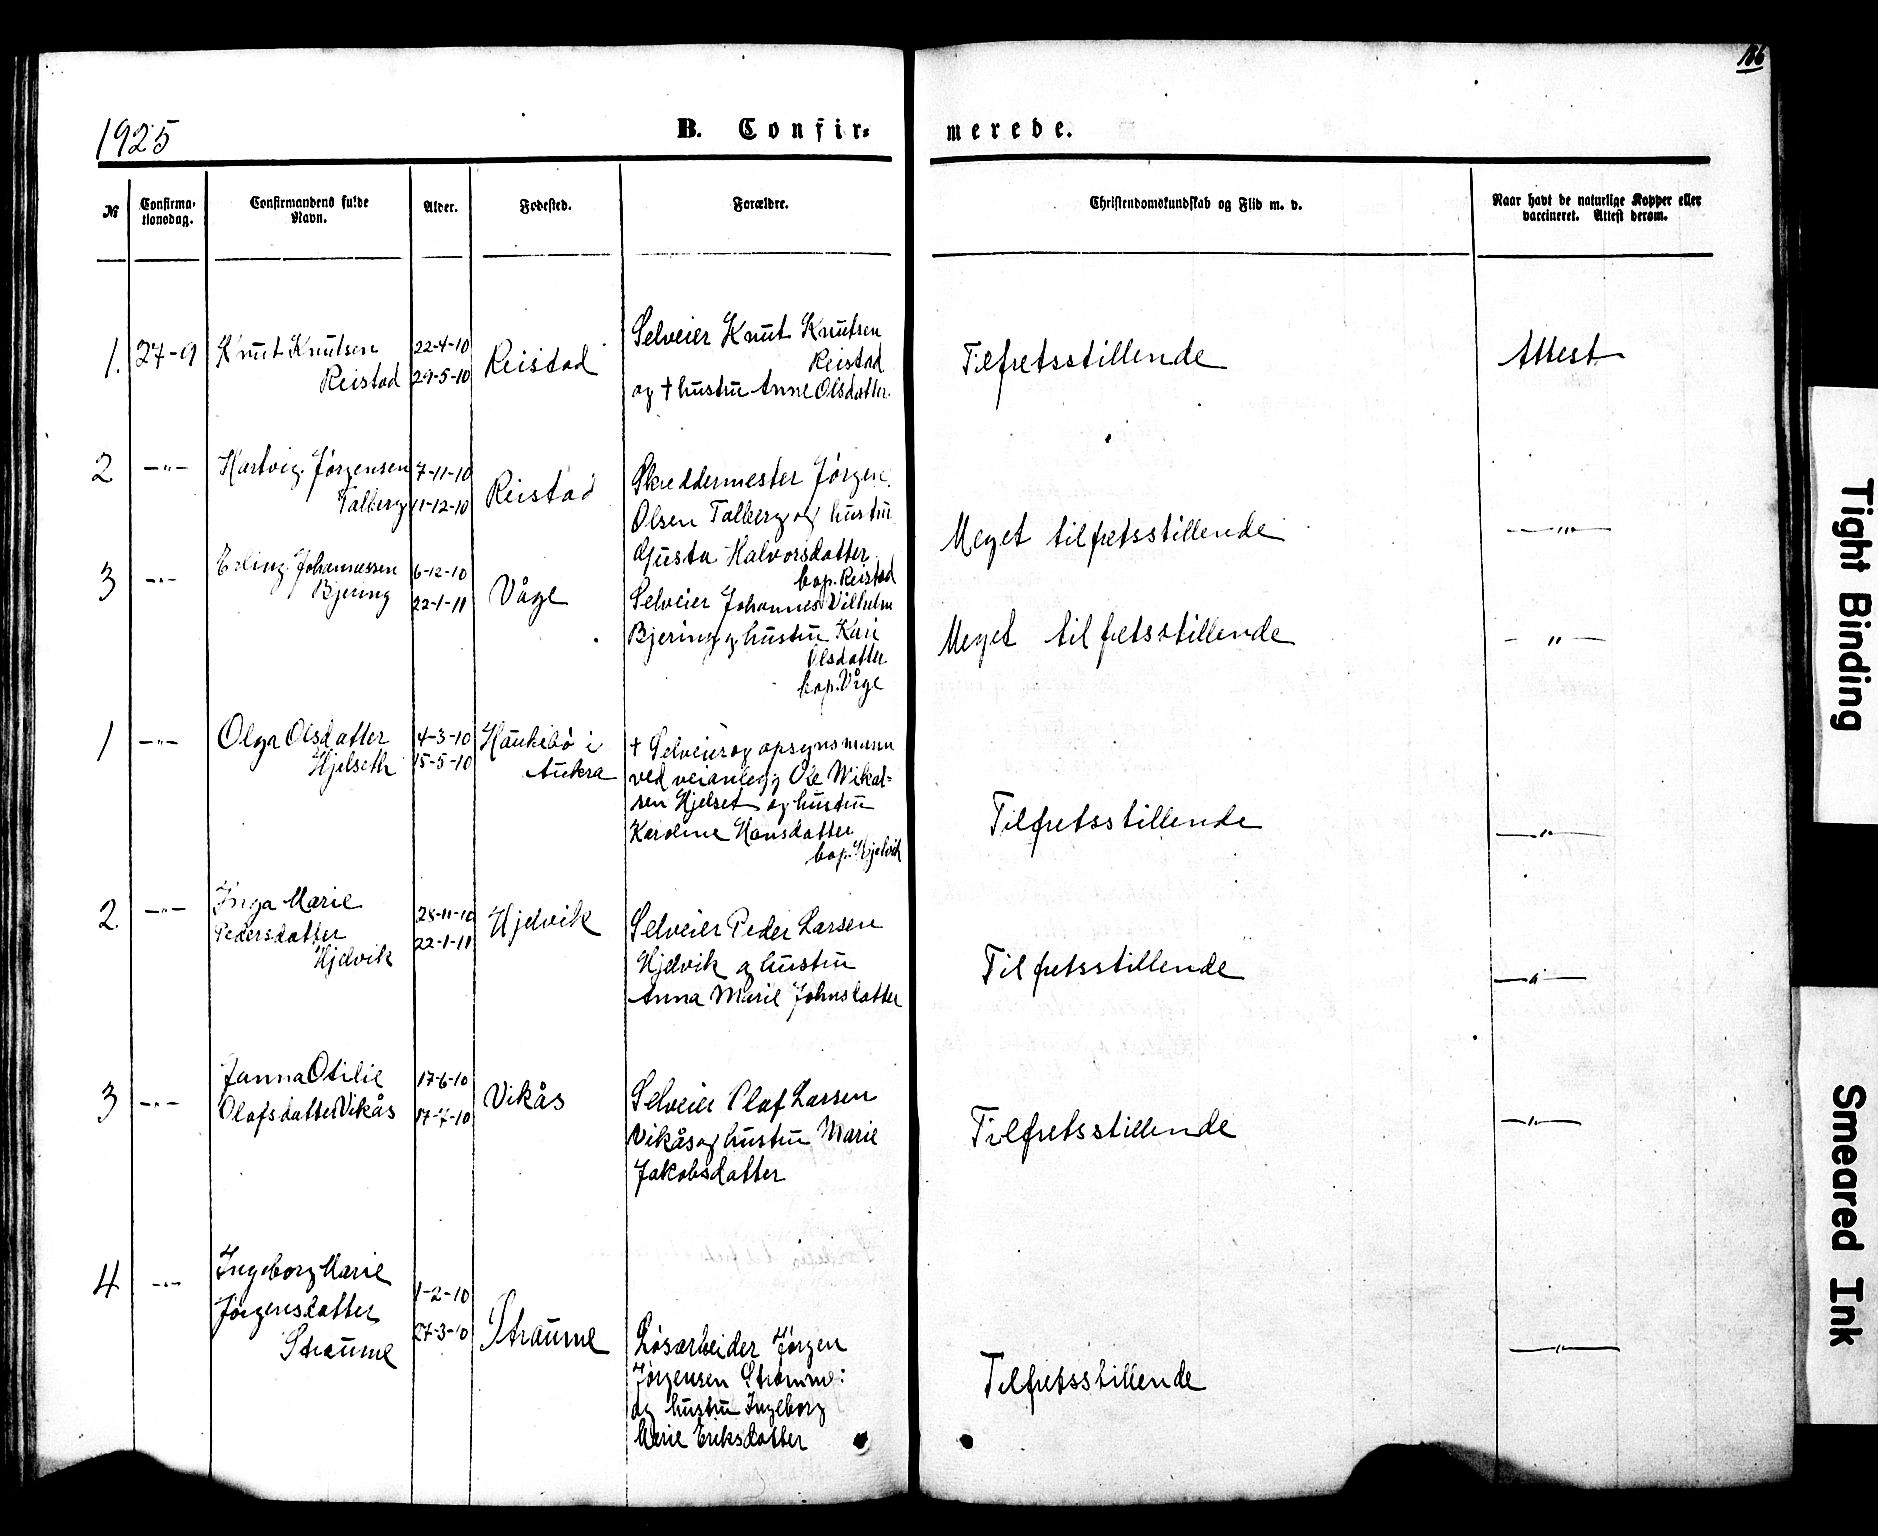 186
1925
B. Confir-
merede.
№
Confirma-
tionsdag.
Confirmandens fulde
Navn.
Alder.
Fødested.
Forældre.
Christendomskundskab og Flid m. v.
Naar havt de naturlige Kopper eller
vaccineret. Attest derom.
1. 27-9
Knut Knutsen
Reistad
22-4-10
29-5-10
Reistad
Selveier Knut Knutsen
Reistad
og † hustru Anne Olsdatter.
Tilfretsstillende
Attest
2 -"-
Hartvig Jörgensen
Talberg
7-11-10
11-12-10
Reistad
Skreddermester Jörgen
Olsen Talberg og hustru
Gusta Halvorsdatter
bop. Reistad
Meget tilfretsstillende
-"-
3 -"-
Erling Johannessen
Bjering
6-12-10
22-1-11
Våge
Selveier Johannes Vilhelm
Bjering og hustru Kari
Olsdatter
bop. Våge
Meget tilfretsstillende
-"-
1 -"-
Olga Olsdatter
Hjelseth
4-3-10
15-5-10
Haukebö i
Aukra
† Selveier og opsynsmann
ved veianlegg Ole Mikal-
sen Hjelset og hustru
Karoline Hansdatter
bop. Hjelvik
Tilfretsstillende
-"-
2 -"-
Inga Marie
Pedersdatter
Hjelvik
28-11-10
22-1-11
Hjelvik
Selveier Peder Larsen
Hjelvik og hustru
Anna Marie Johnsdatter
Tilfretsstillende
-"-
3 -"-
Janna Otilie
Olafsdatter Vikås
17-6-10
17-7-10
Vikås
Selveier Olaf Larsen
Vikås og hustru Marie
Jakobsdatter
Tilfretsstillende
-"-
4 -"-
Ingeborg Marie
Jörgensdatter
Straume
1-2-10
27-3-10
Straume
Lösarbeider Jörgen
Jörgensen Straume
og hustru Ingeborg
Marie Eriksdatter
Tilfretsstillende
-"-
Tight Binding
Smeared Ink